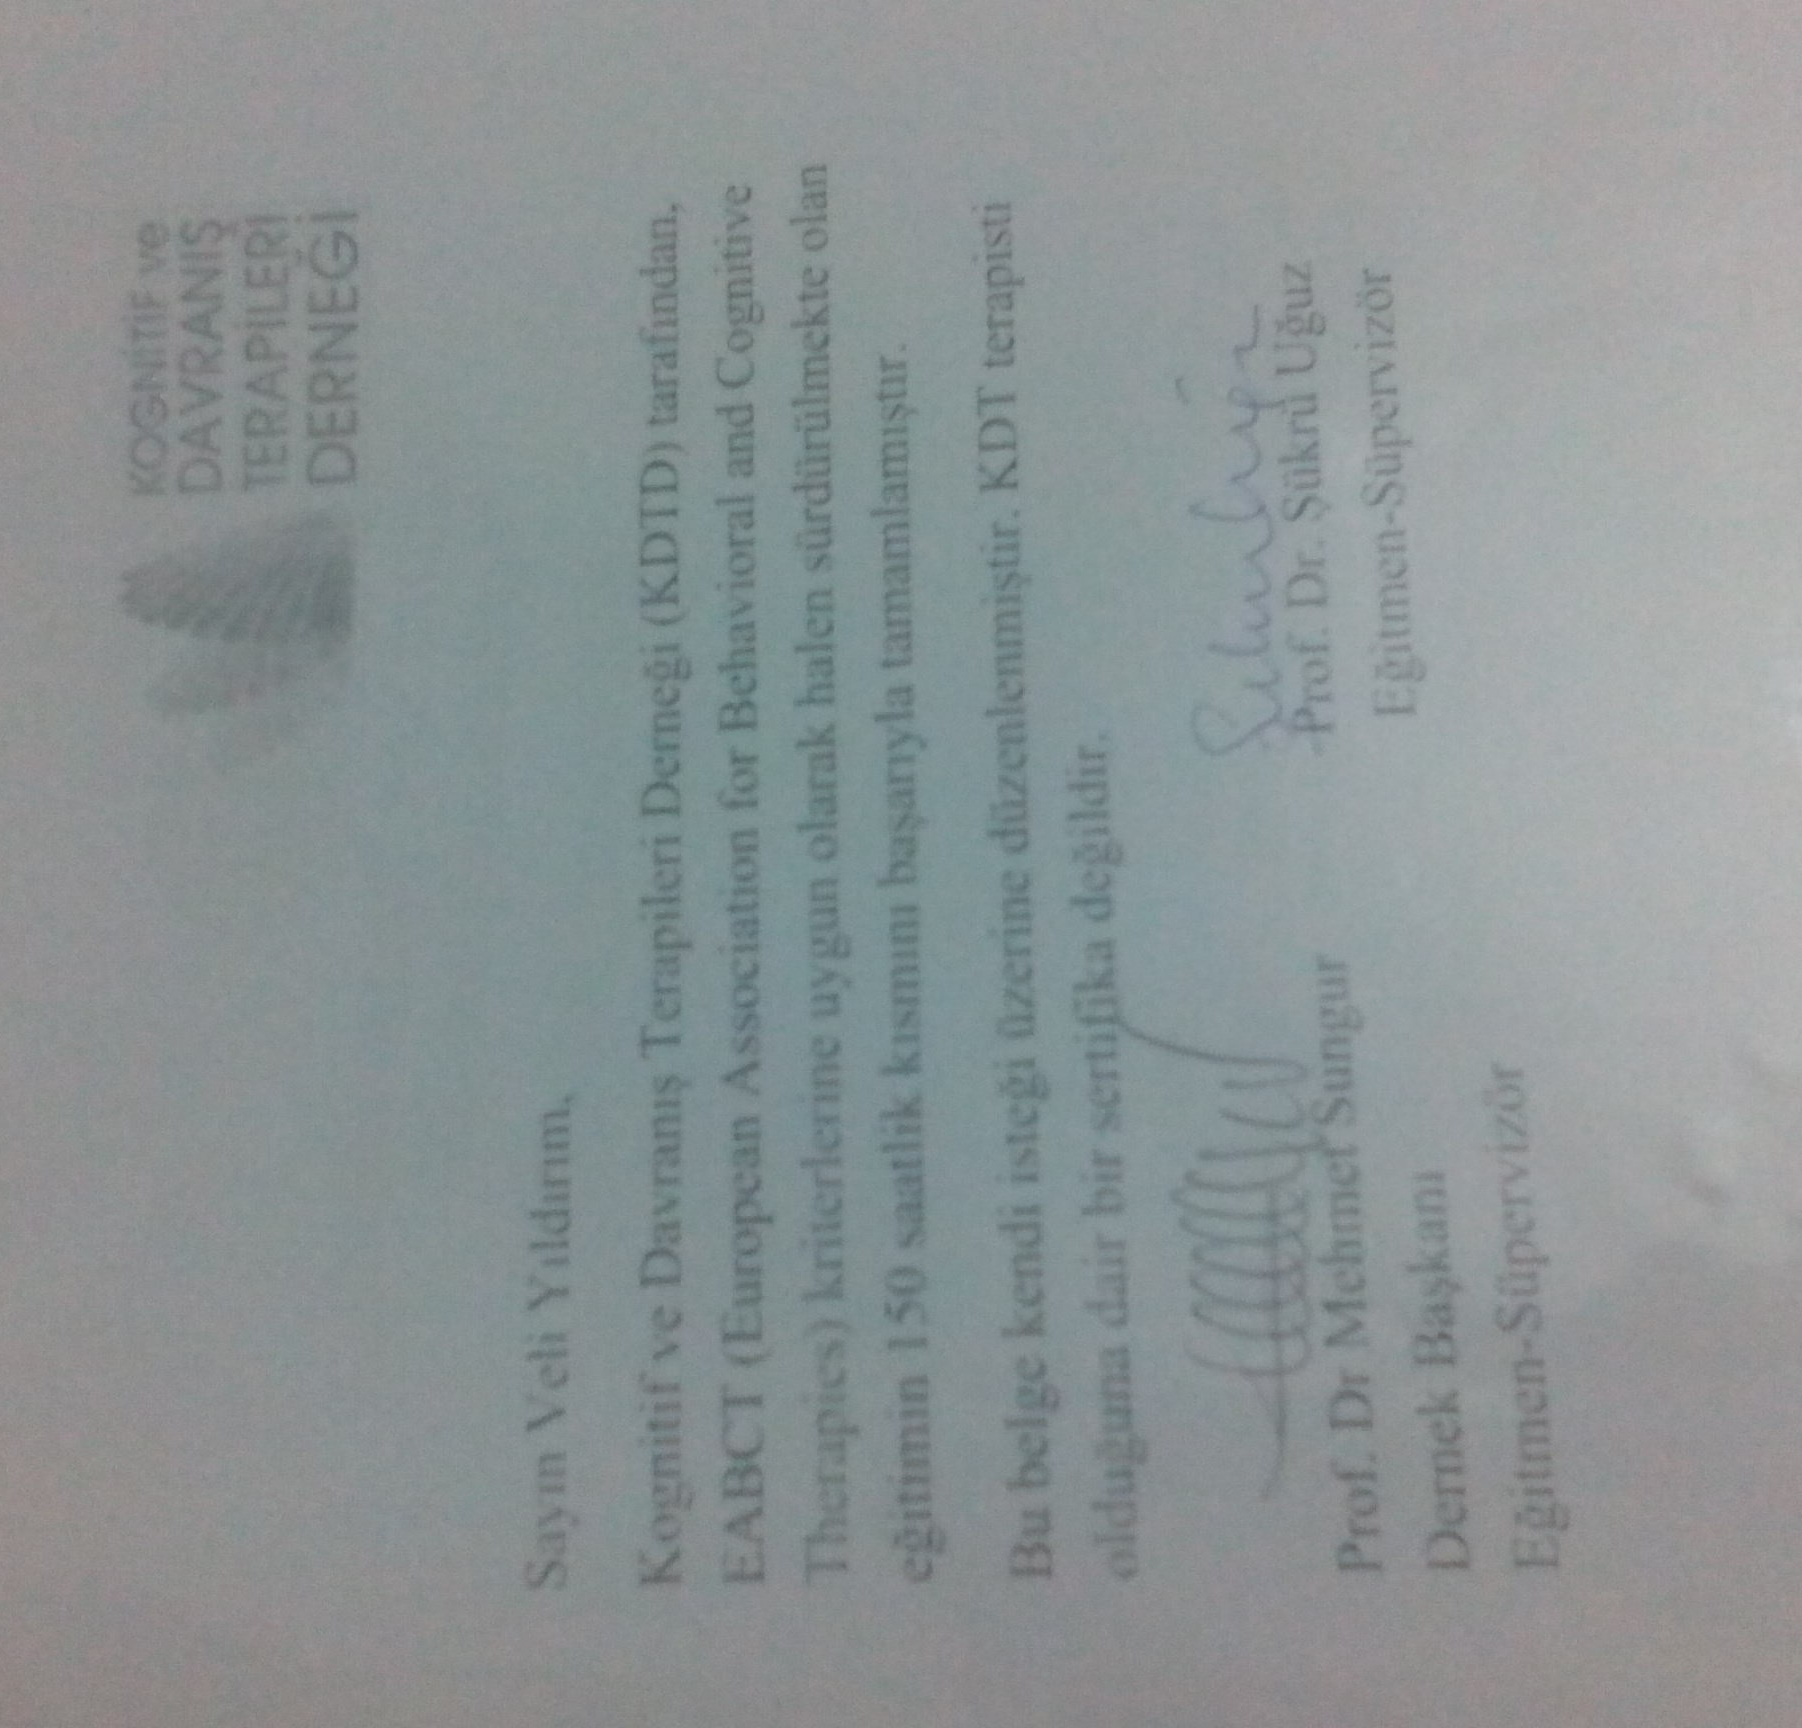 KOGNİTİF ve
DAVRANIŞ
TERAPİLERİ
DERNEĞİ
Sayın Veli Yıldırım,
Kognitif ve Davranış Terapileri Derneği (KDTD) tarafından,
EABCT (European Association for Behavioral and Cognitive
Therapies) kriterlerine uygun olarak halen sürdürülmekte olan
eğitimin 150 saatlik kısmını başarıyla tamamlamıştır.
Bu belge kendi isteği üzerine düzenlenmiştir. KDT terapisti
olduğuna dair bir sertifika değildir.
Prof. Dr Mehmet Sungur
Dernek Başkanı
Eğitmen-Süpervizör
Prof. Dr. Şükrü Uğuz
Eğitmen-Süpervizör